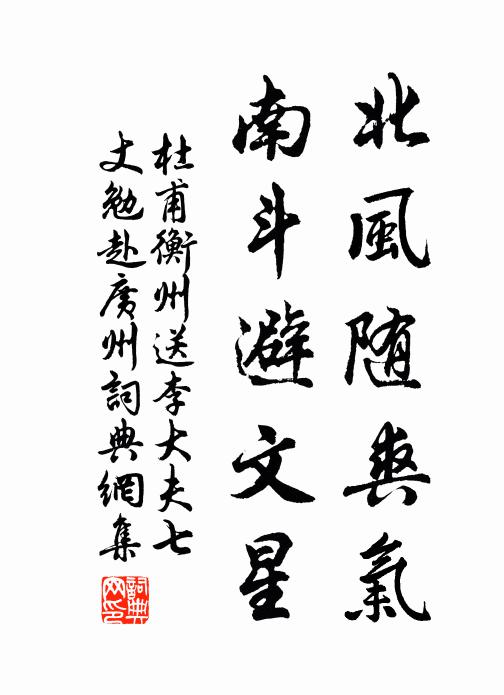 北風随爽氣
南斗避文星
杜甫衡州送李大夫七
丈勉赴廣州詞典網集
詞典網印